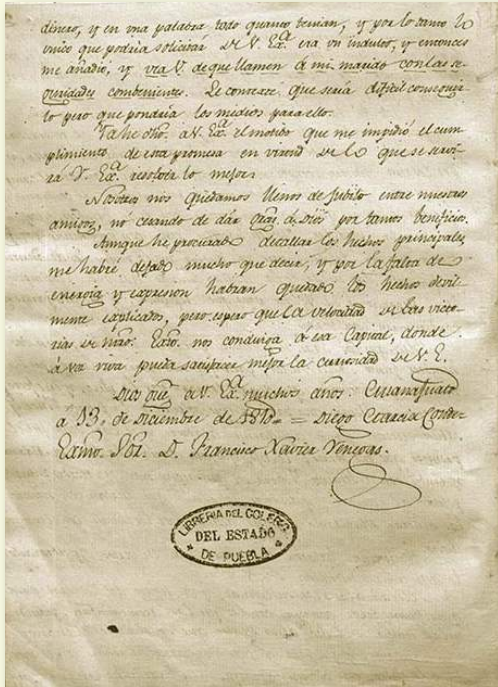 dinero, y en una palabra todo quanto tenian, y por lo tanto lo
unico que podria solicitar de V. Exa. era un indulto, y entonces
me añadió, y vea V. de que llamen a mi marido con las se-
guridades combenientes. Le contexte, que seria dificil conseguir
lo pero que pondria los medios para ello.
Ya he dho. a V. Exa. el motibo que me impidió el cum-
plimiento de esta promesa en virtud de lo que se servi-
rá V. Exa. resolver lo mejor.
Nosotros nos quedamos llenos de jubilo entre nuestros
amigos, no cesando de dár gras. á Dios por tantos beneficios.
Aunque he procurado detallar los hechos principales,
me habré dejado mucho que decir, y por la falta de
energia y expresion habran quedado los hechos devil-
mente explicados, pero espero que la velocidad de las victo-
rias de nro. Exto. nos conduzca á esa Capital, donde
á voz viva pueda satisfacer mejor la curiosidad de V. E.
Dios gue. a V. Exa. muchos años. Guanajuato
á 13. de Diciembre de 1810. = Diego Garcia Conde
Exmo. Sor. D. Francisco Xavier Venegas.
LIBRERIA DEL COLEGIO
DEL ESTADO
* DE PUEBLA *